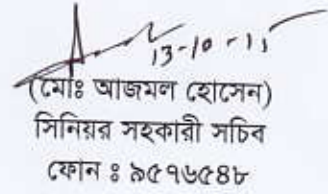 13-10-15
(মোঃ আজমল হোসেন)
সিনিয়র সহকারী সচিব
ফোন ঃ ৯৫৭৬৫৪৮